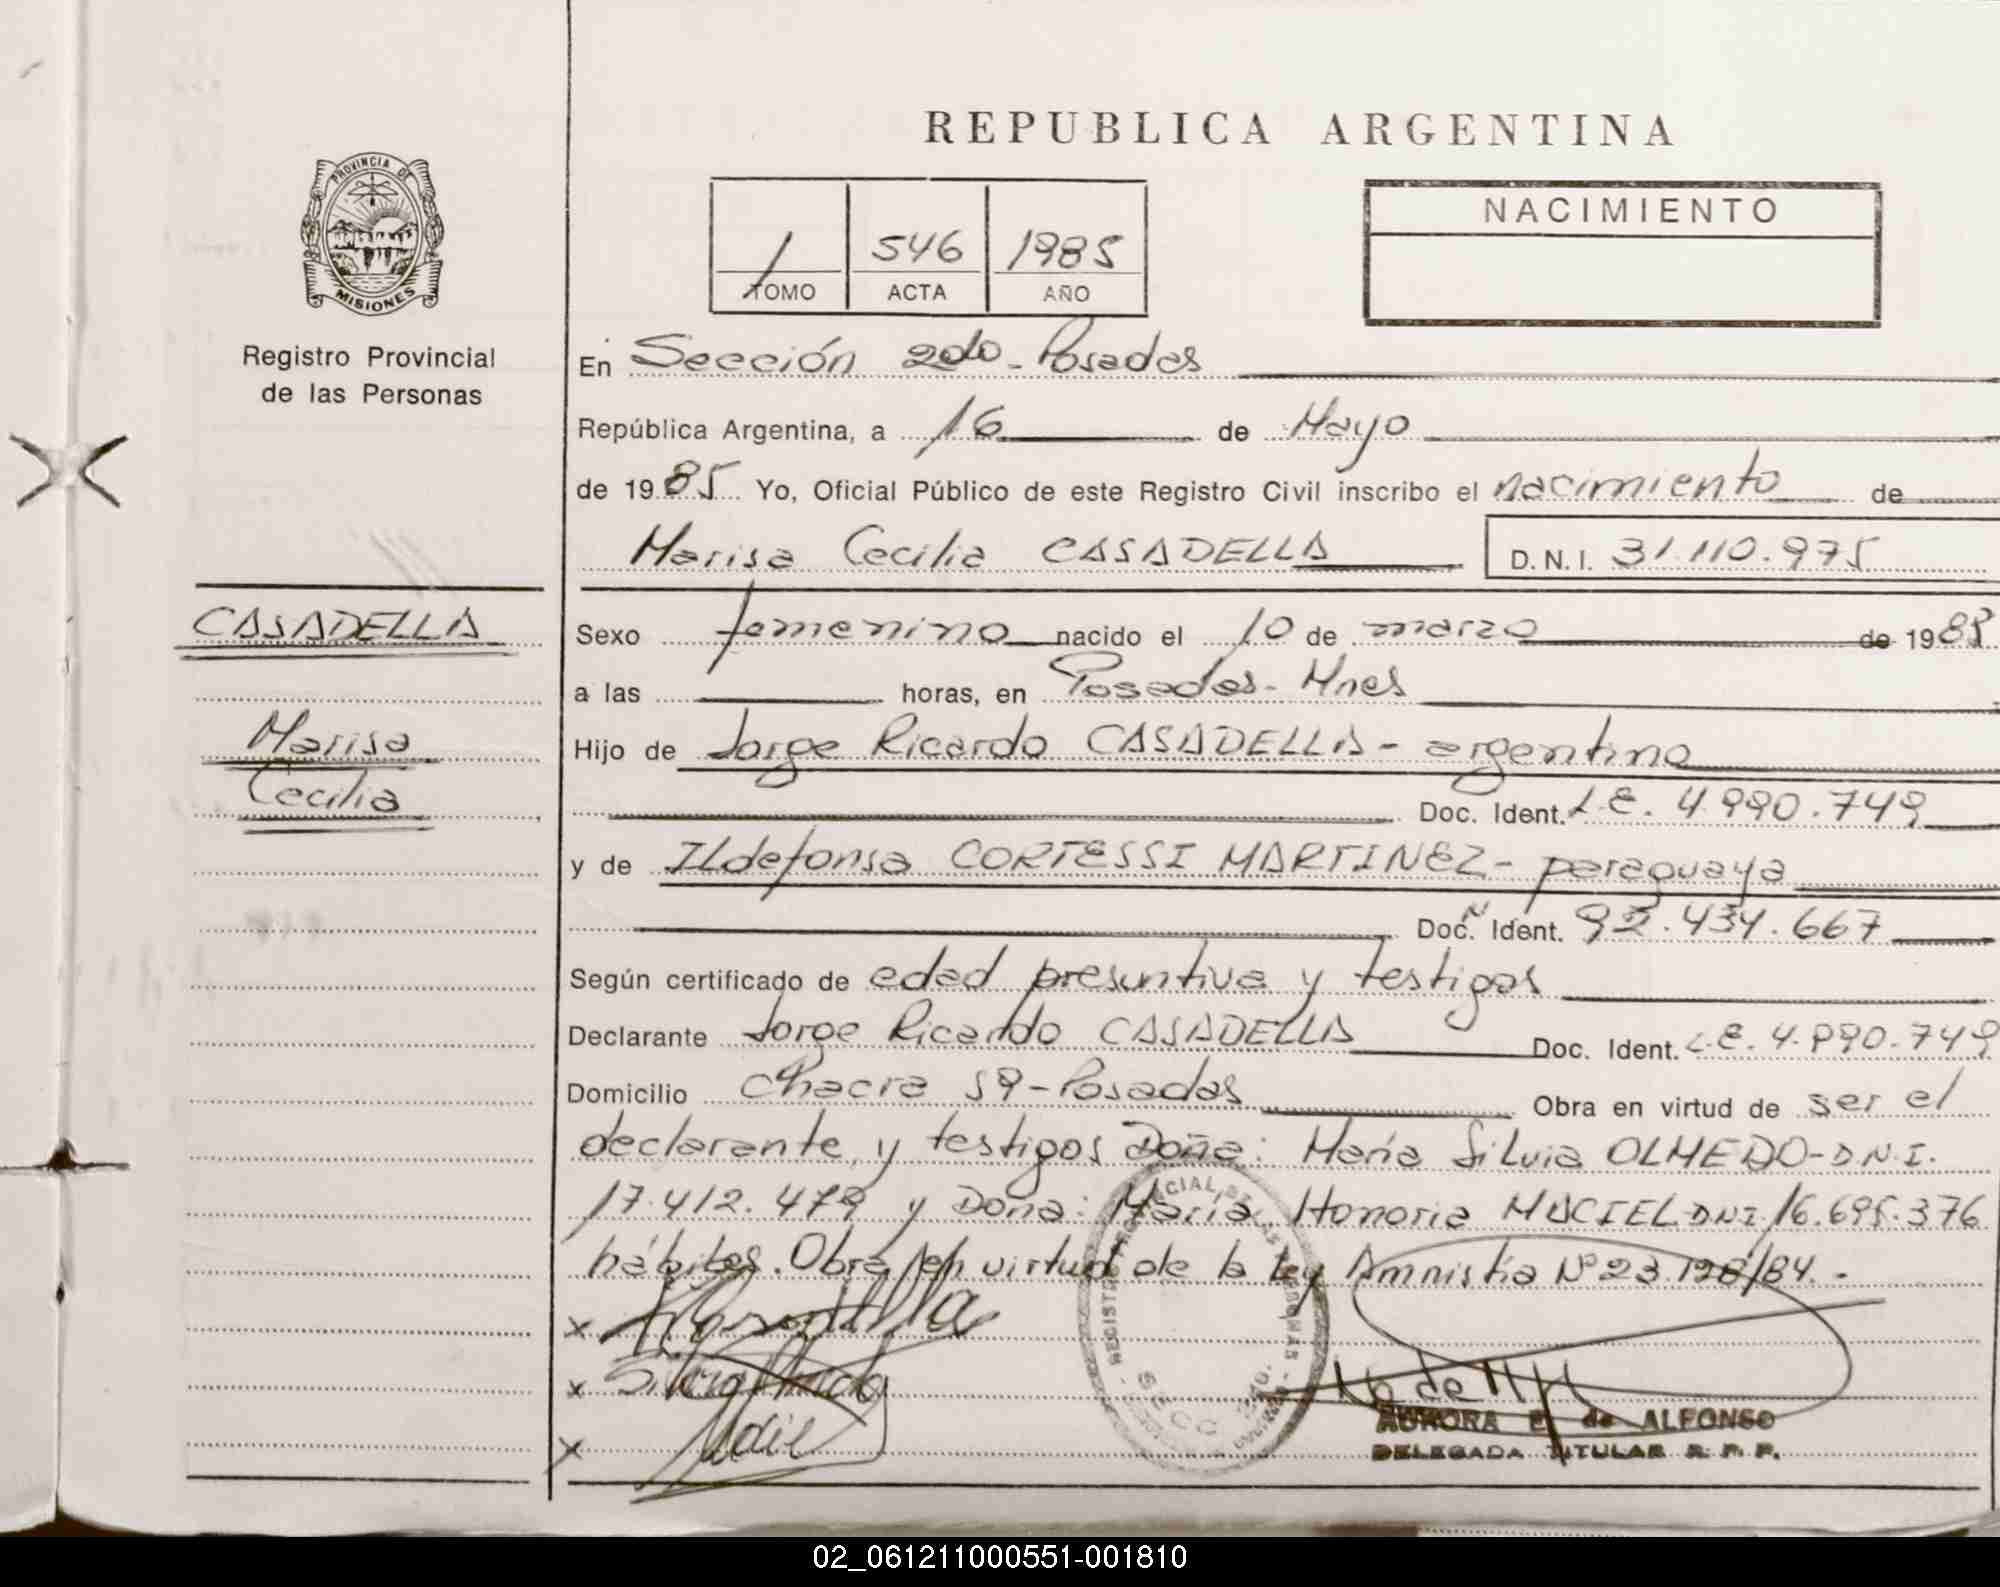 REPUBLICA ARGENTINA
PROVINCIA DE
MISIONES
Registro Provincial
de las Personas
1 546 1985
TOMO ACTA AÑO
NACIMIENTO
En Sección 2do - Posadas
República Argentina, a 16 de Mayo
de 1985 Yo, Oficial Público de este Registro Civil inscribo el nacimiento de
Marisa Cecilia CASADELLA D.N.I. 31.110.975
CASADELLA
Marisa
Cecilia
Sexo femenino nacido el 10 de marzo de 198
a las horas, en Posadas - Mnes
Hijo de Jorge Ricardo CASADELLA - argentino
Doc. Ident. L.E. 4.990.749
y de Ildefonsa CORTESSI MARTINEZ - paraguaya
Doc. Ident. 92.434.667
Según certificado de edad presuntiva y testigos
Declarante Jorge Ricardo CASADELLA Doc. Ident. L.E. 4.990.749
Domicilio Chacra 59 - Posadas Obra en virtud de ser el
declarante, y testigos Doña: María Silvia OLMEDO - D.N.I.
17.412.479 y Doña: María Honoria MACIEL DNI 16.695.376
hábiles. Obra en virtud de la ley Amnistia Nº 23.128/84.-
x
x
x
AURORA E. de ALFONSO
DELEGADA TITULAR R. P. P.
02_061211000551-001810